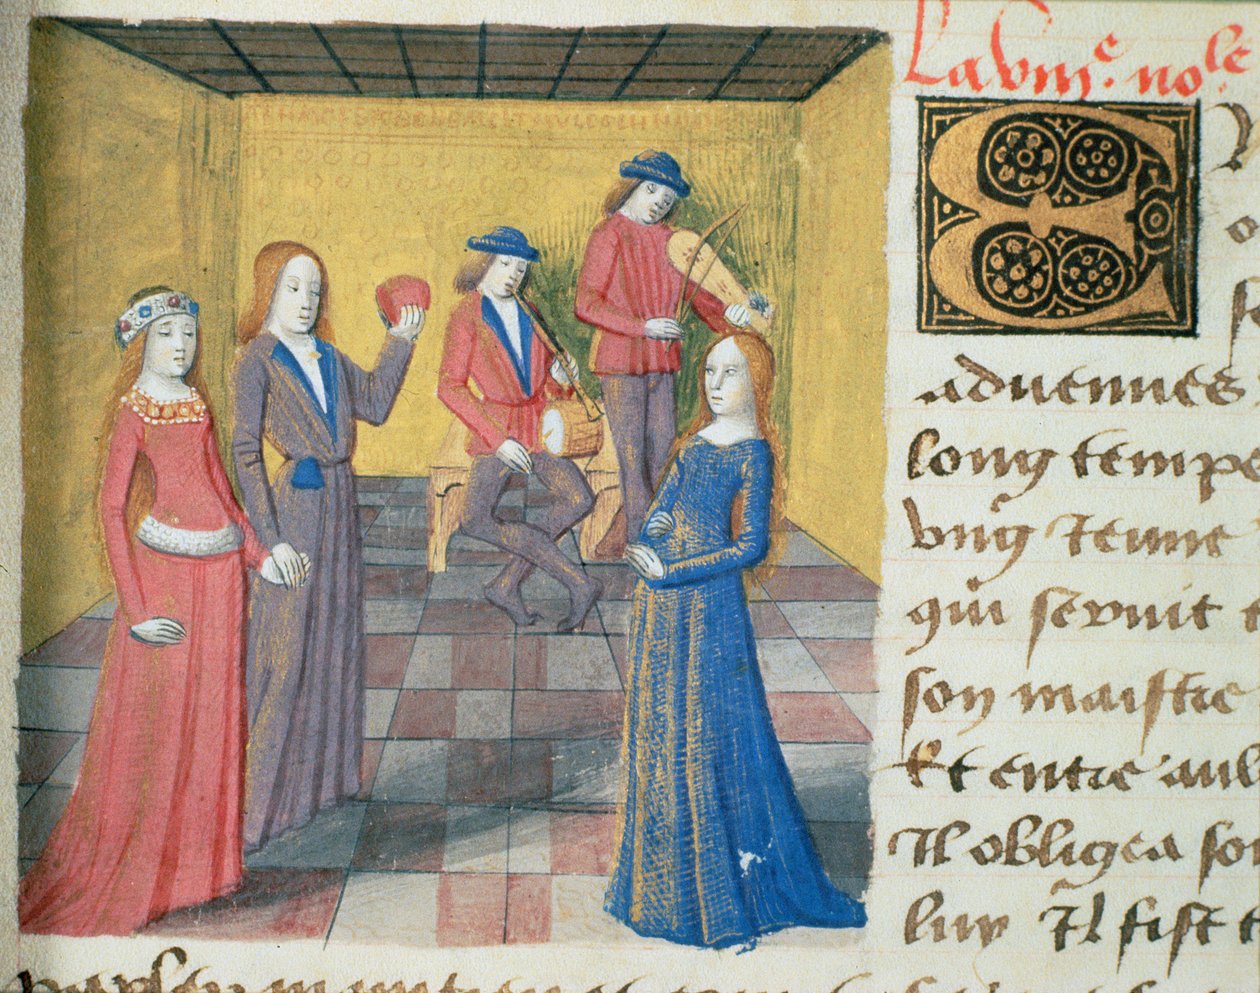 La viije. nole
E
aduenues
long tempe
vng Jeune
qui seruit t
son maistre
Et entre aul
Il obligea so
luy Il fist t